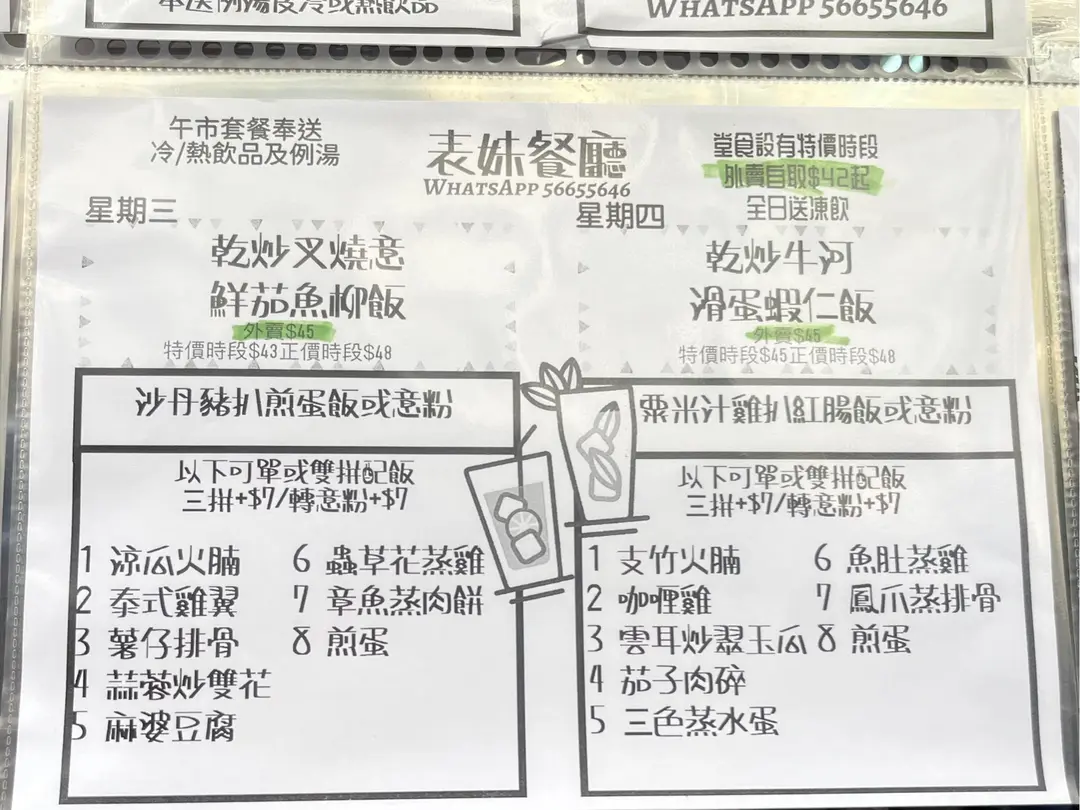 奉送例湯及冷或熱飲品
WHATSAPP 56655646
午市套餐奉送
冷/熱飲品及例湯
表妹餐廳
WHATSAPP 56655646
堂食設有特價時段
外賣自取$42起
全日送凍飲
星期三
乾炒叉燒意
鮮茄魚柳飯
外賣$45
特價時段$43正價時段$48
沙丹豬扒煎蛋飯或意粉
以下可單或雙拼配飯
三拼+$7/轉意粉+$7
1 涼瓜火腩
2 泰式雞翼
3 薯仔排骨
4 蒜蓉炒雙花
5 麻婆豆腐
6 蟲草花蒸雞
7 章魚蒸肉餅
8 煎蛋
星期四
乾炒牛河
滑蛋蝦仁飯
外賣$45
特價時段$45正價時段$48
粟米汁雞扒紅腸飯或意粉
以下可單或雙拼配飯
三拼+$7/轉意粉+$7
1 支竹火腩
2 咖喱雞
3 雲耳炒翠玉瓜
4 茄子肉碎
5 三色蒸水蛋
6 魚肚蒸雞
7 鳳爪蒸排骨
8 煎蛋